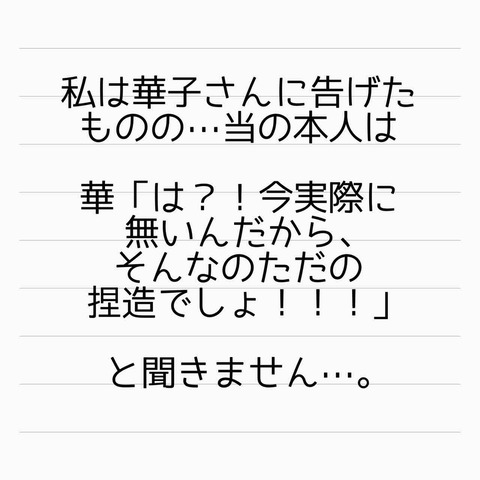 私は華子さんに告げた
ものの…当の本人は
華「は？！今実際に
無いんだから、
そんなのただの
捏造でしょ！！！」
と聞きません…。